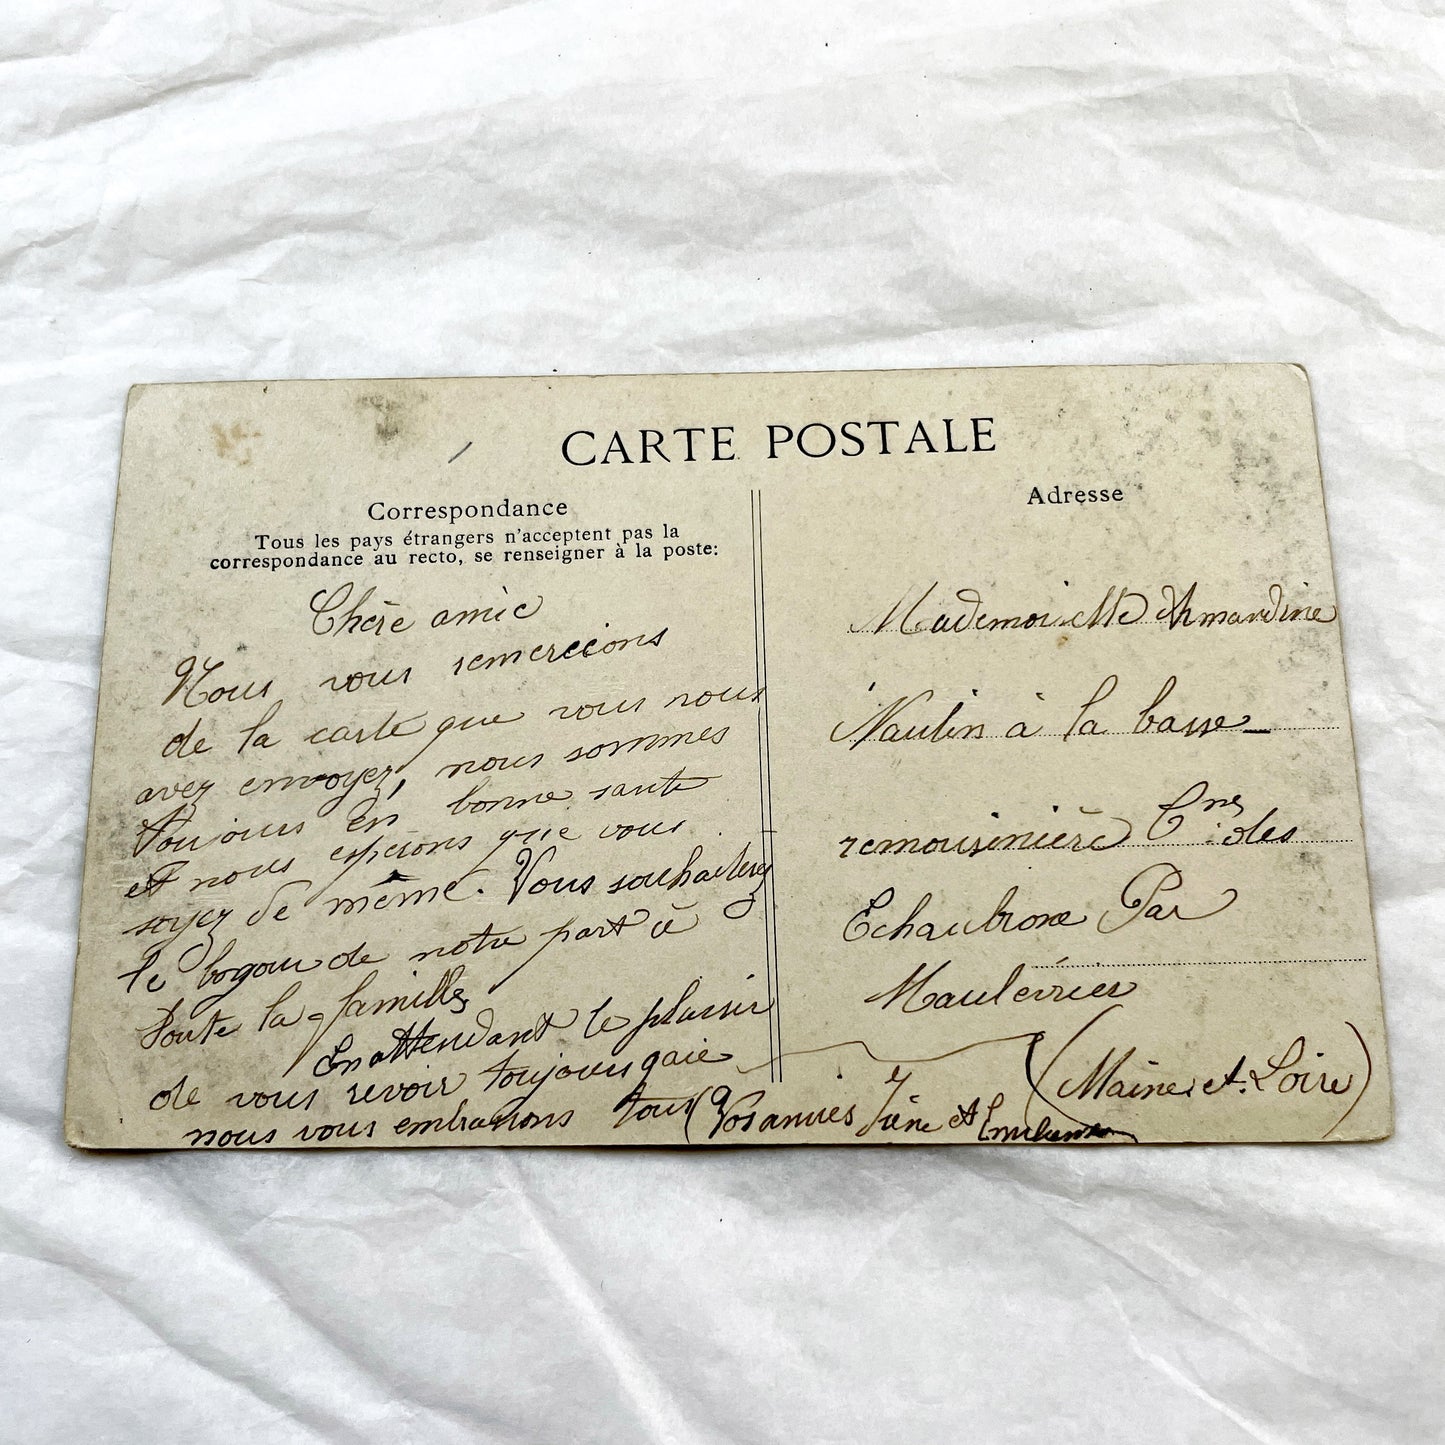 CARTE POSTALE
Correspondance
Tous les pays étrangers n'acceptent pas la
correspondance au recto, se renseigner à la poste:
Chère amie
Nous vous remercions
de la carte que vous nous
avez envoyez, nous sommes
Toujours en bonne santé
et nous espérons que vous
soyez de même. Vous souhaiterez
le bogour de notre part à
Toute la famille
En attendant le plaisir
de vous revoir toujours gaie
nous vous embrassons tous
Vos amies
et
Adresse
Mademoiselle Armandine
Naulin à la basse
remousinière Cne des
Echaubrone Par
Maulévrier
(Maine et Loire)